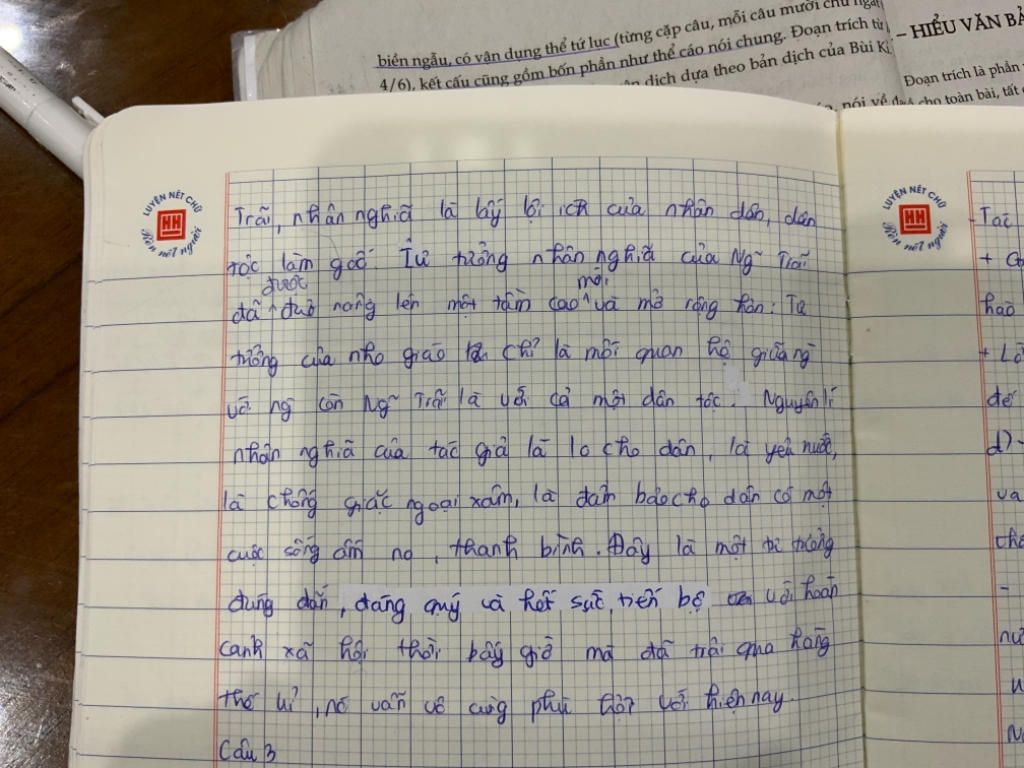 biền ngẫu, có vận dụng thể tứ lục (từng cặp câu, mỗi câu mười chữ ngắt
4/6), kết cấu cũng gồm bốn phần như thể cáo nói chung. Đoạn trích từ
dịch dựa theo bản dịch của Bùi Kỉ
– HIỂU VĂN BẢ
Đoạn trích là phần
nói về
cho toàn bài, tất
LUYỆN NÉT CHỮ
HH
Rèn nết người
Trãi, nhân nghĩa là lấy lợi ích của nhân dân, dân
tộc làm gốc. Tư tưởng nhân nghĩa của Ng Trãi
được mới
đã ^ đưa nâng lên một tầm cao ^ và mở rộng hơn: Tư
tưởng của nho giáo chỉ là mối quan hệ giữa ng
với ng còn Ng Trãi là với cả một dân tộc. Nguyên lí
nhân nghĩa của tác giả là lo cho dân, là yêu nước,
là chống giặc ngoại xâm, là đảm bảo cho dân có một
cuộc sống ấm no, thanh bình. Đây là một tư tưởng
đúng đắn, đáng quý và hết sức tiến bộ với hoàn
cảnh xã hội thời bấy giờ mà đã trải qua hàng
thế kỉ, nó vẫn vô cùng phù hợp với hiện nay.
Câu 3
LUYỆN NÉT CHỮ
HH
Rèn nết người
- Tác
+
hào
+ Lờ
đế
d)
và
-